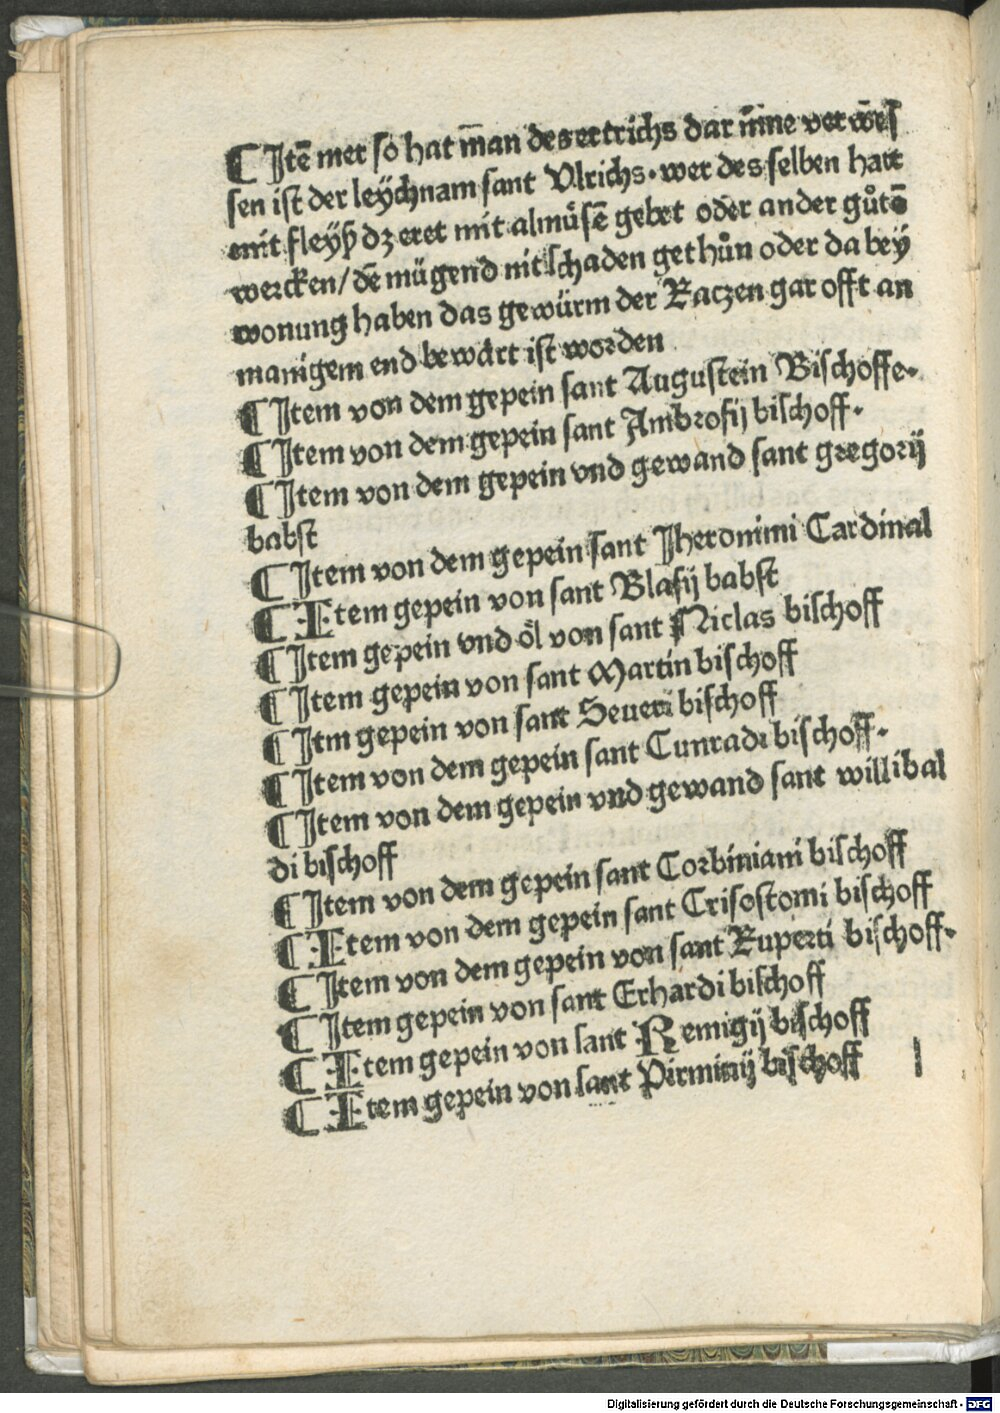 ¶ Itē mer so hat m̄an des ertrichs dar īnne ver wēs
sen ist der leÿchnam sant Vlrichs · wer des selben hatt
mit fleyß dz eret mit almůsē gebet oder ander gůtē
wercken / dē mügend nit schaden gethůn oder da beÿ
wonung haben das gewürm der Raczen gar offt an
manigem end bewärt ist worden
¶ Item von dem gepein sant Augustein Bischoffe ·
¶ Item von dem gepein sant Ambrosij bischoff ·
¶ Item von dem gepein vnd gewand sant gregorij
babst
¶ Item von dem gepein sant Jheronimi Cardinal
¶ Item gepein von sant Blasij babst
¶ Item gepein vnd öl von sant Niclas bischoff
¶ Item gepein von sant Martin bischoff
¶ Itm gepein von sant Seueri bischoff
¶ Item von dem gepein sant Cunradi bischoff ·
¶ Item von dem gepein vnd gewand sant willibal
di bischoff
¶ Item von dem gepein sant Corbiniani bischoff
¶ Item von dem gepein sant Crisostomi bischoff
¶ Item von dem gepein von sant Ruperti bischoff ·
¶ Item gepein von sant Erhardi bischoff
¶ Item gepein von sant Remigij bischoff
¶ Item gepein von sant Pirminij bischoff
Digitalisierung gefördert durch die Deutsche Forschungsgemeinschaft - DFG